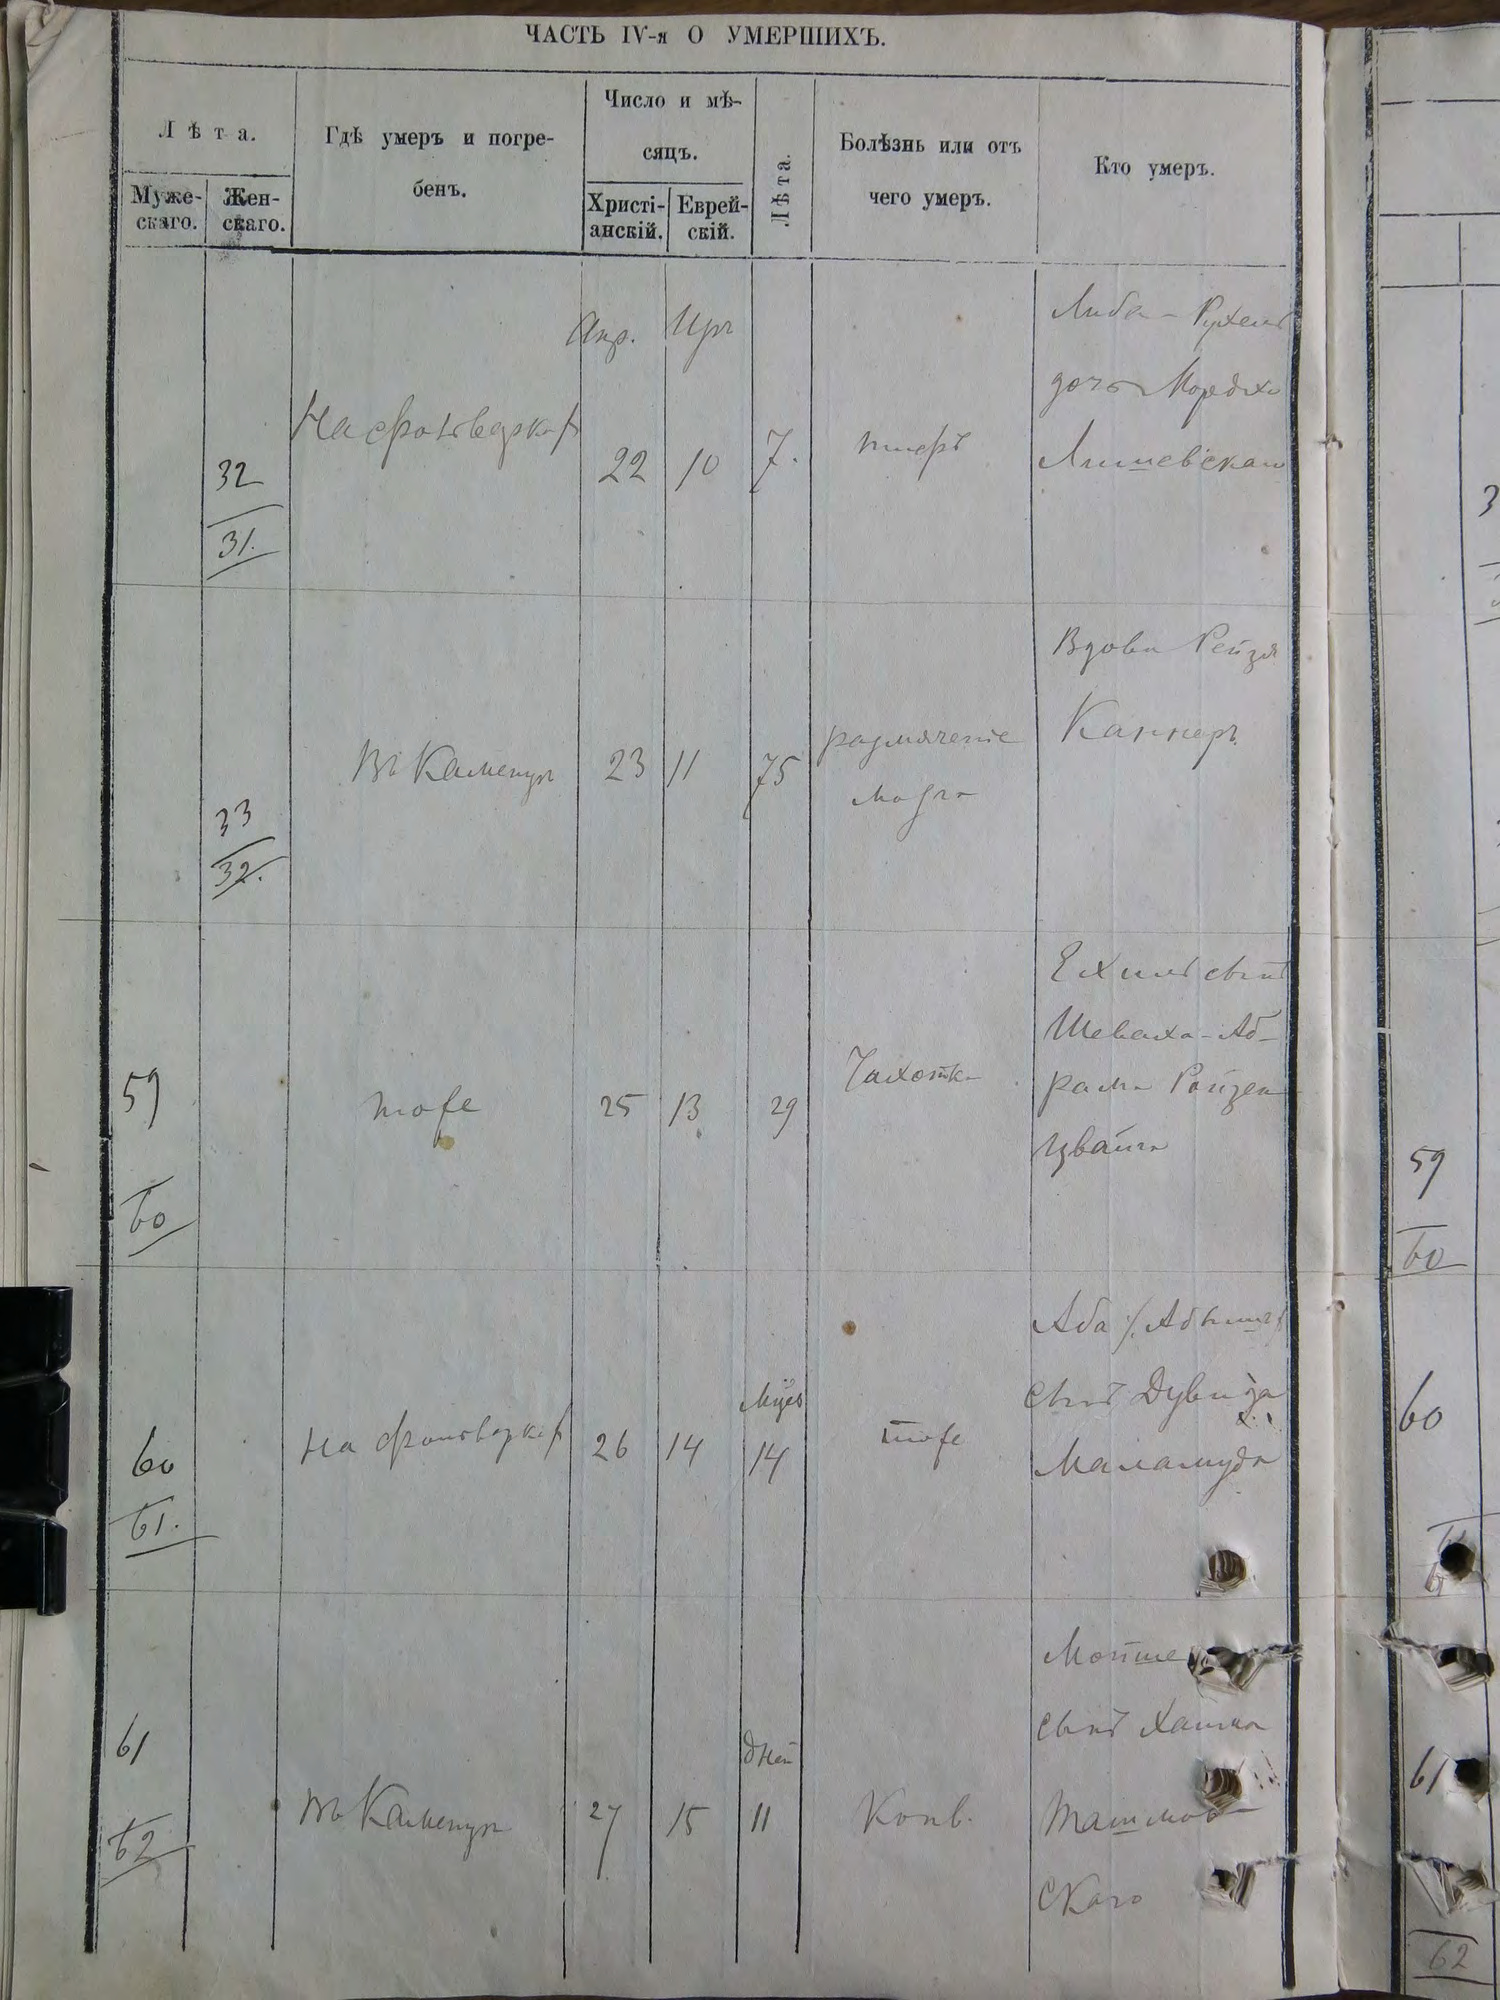 ЧАСТЬ IV-я О УМЕРШИХЪ.
Лѣта.
Муже-
скаго.
Жен-
скаго.
Гдѣ умеръ и погре-
бенъ.
Число и мѣ-
сяцъ.
Христі-
анскій.
Еврей-
скій.
Лѣта.
Болѣзнь или отъ
чего умеръ.
Кто умеръ.
32
31.
Апр.
22
10
7.
Либа - Рухель
дочь Мордхо
33
32.
Въ Каменцѣ
23
11
75
размягченіе
мозга
Вдова Рейзя
Каннеръ
59
60
тоже
25
13
29
Чахотка
Ехиль сынъ
Шеваха - Аб-
рама Ройзен
цвайга
60
61.
26
14
14
тоже
Аба
сынъ Дувида
Маламуда
61
62
Въ Каменцѣ
27
15
дней
11
Конв.
Мойше
сынъ Хаима
скаго
59
60
60
61
62